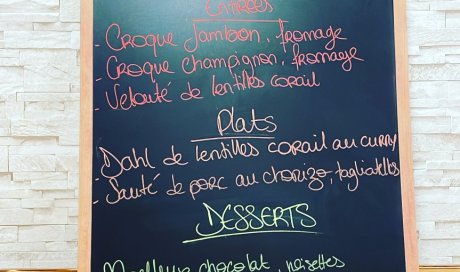 Entrées
- Croque Jambon, fromage
- Croque champignon, fromage
- Velouté de lentilles corail
Plats
- Dahl de lentilles corail au curry
- Sauté de porc au chorizo, tagliatelles
DESSERTS
Moelleux chocolat, noisettes